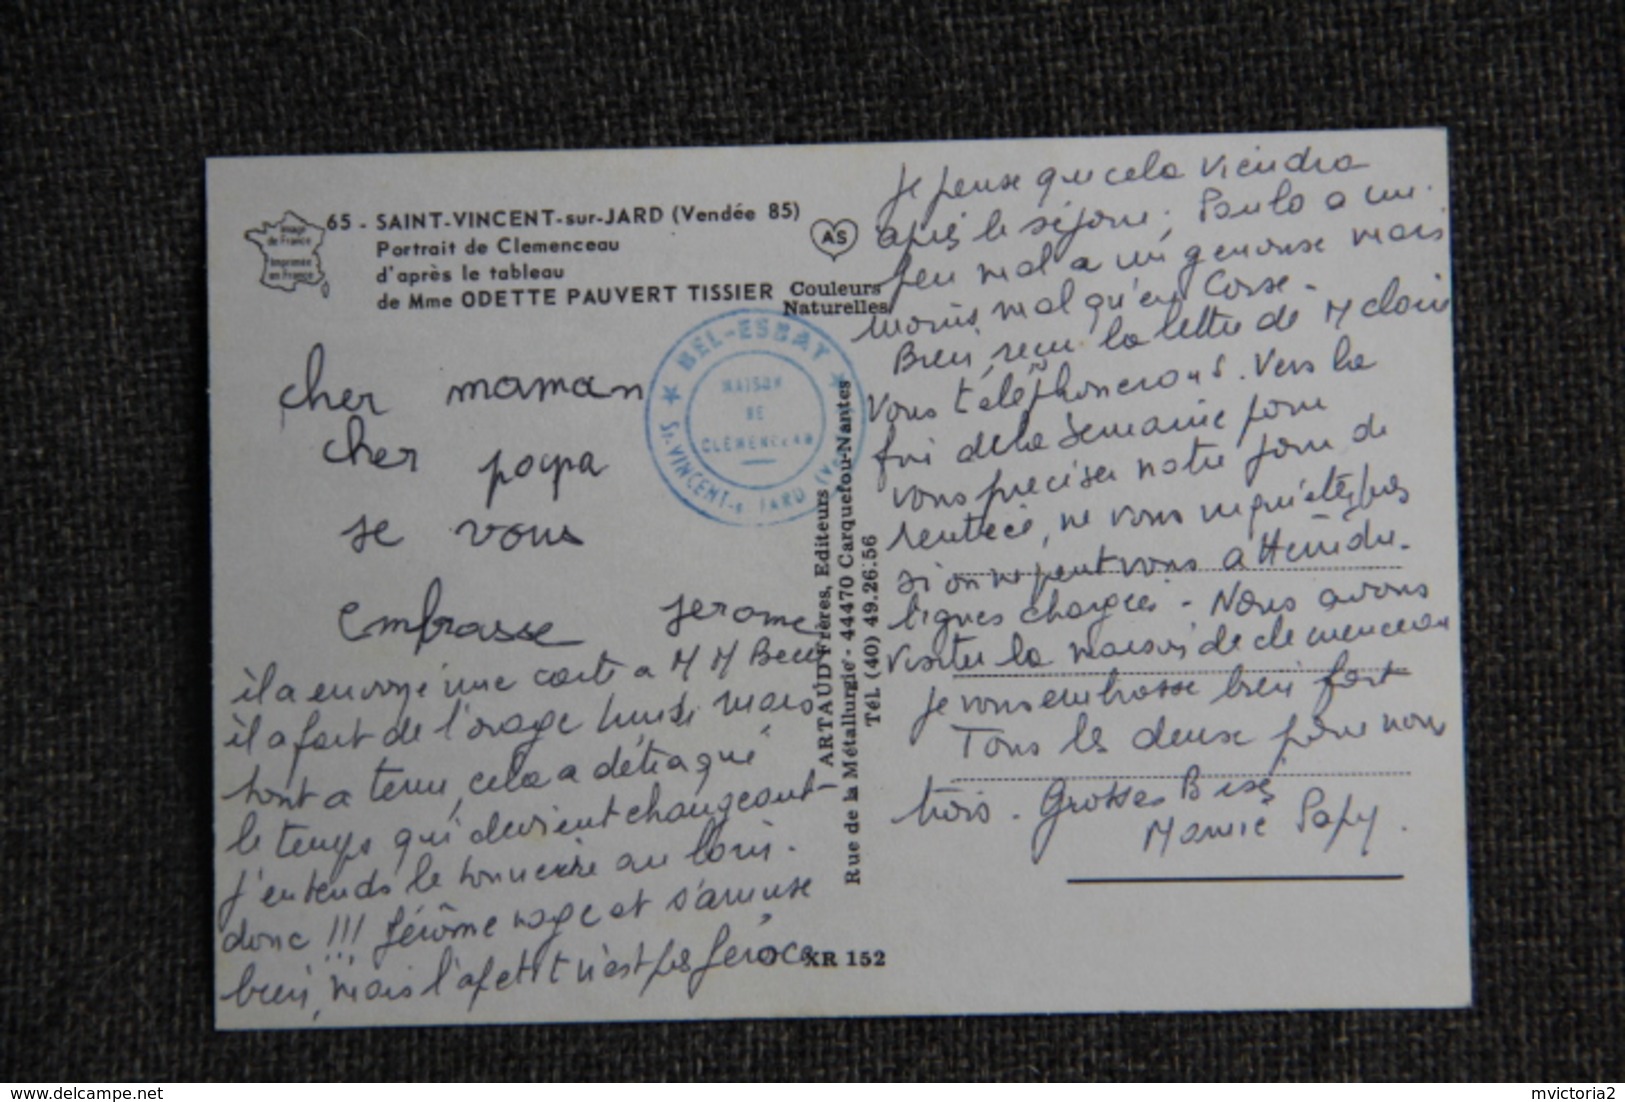 65 - SAINT-VINCENT-sur-JARD (Vendée 85)
Portrait de Clemenceau
d'après le tableau
de Mme ODETTE PAUVERT TISSIER
Image
de France
Imprimée
en France
AS
Couleurs
Naturelles
BEL-ESBAT
MAISON
DE
CLÉMENCEAU
St-VINCENT-s JARD
cher maman
cher papa
je vous
embrasse jerome
il a envoyé une carte a M M
il a fait de l'orage lundi mais
tout a tenu, cela a détraqué
le temps qui devient changeant -
j'entends le tonnerre au loin.
donc !!! Jérôme nage et s'amuse
bien, mais l'apetit n'est pas féroce
ARTAUD Frères, Editeurs
Rue de la Métallurgie - 44470 Carquefou-Nantes
Tél. (40) 49.26.56
XR 152
Je pense que cela viendra
après le séjour, Paulo a un
peu mal a un genouse mais
moins mal qu'en Corse -
Bien reçu la lettre de M
Vous téléphonerons. Vers la
fin de la semaine pour
vous preciser notre jour de
rentrée, ne vous inquiétez pas
si on ne peut vous atteindre -
lignes chargées - Nous avons
visiter la maison de clemenceau
je vous embrasse bien fort
Tous les deux pour nous
trois. Grosses Bises
Mamie Papy.
mvictoria2